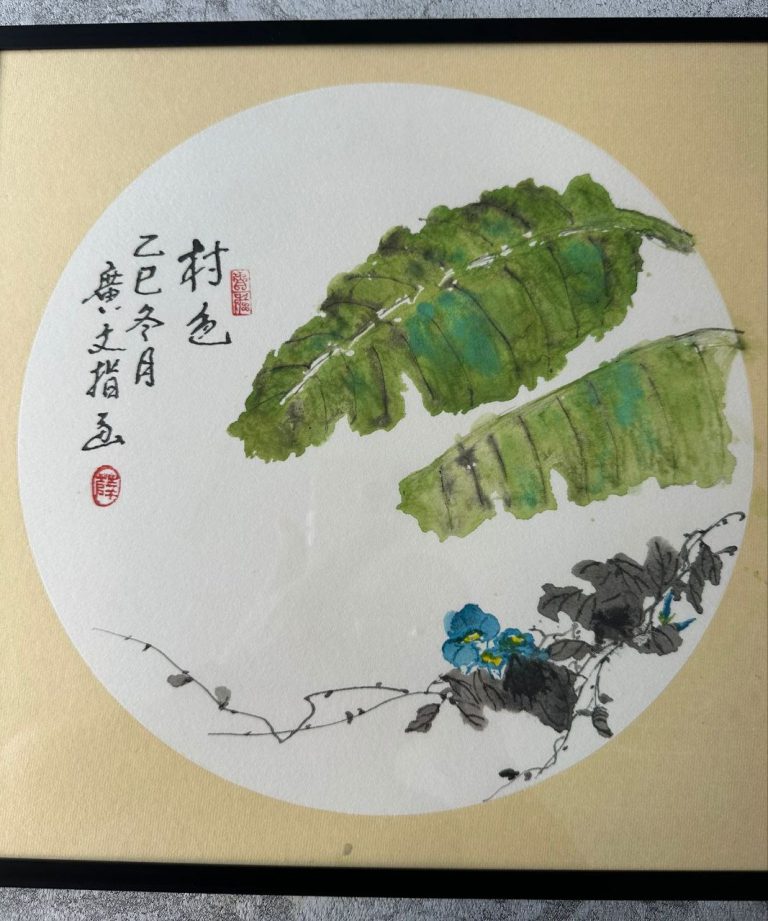 村色
乙巳冬月
廣文指画